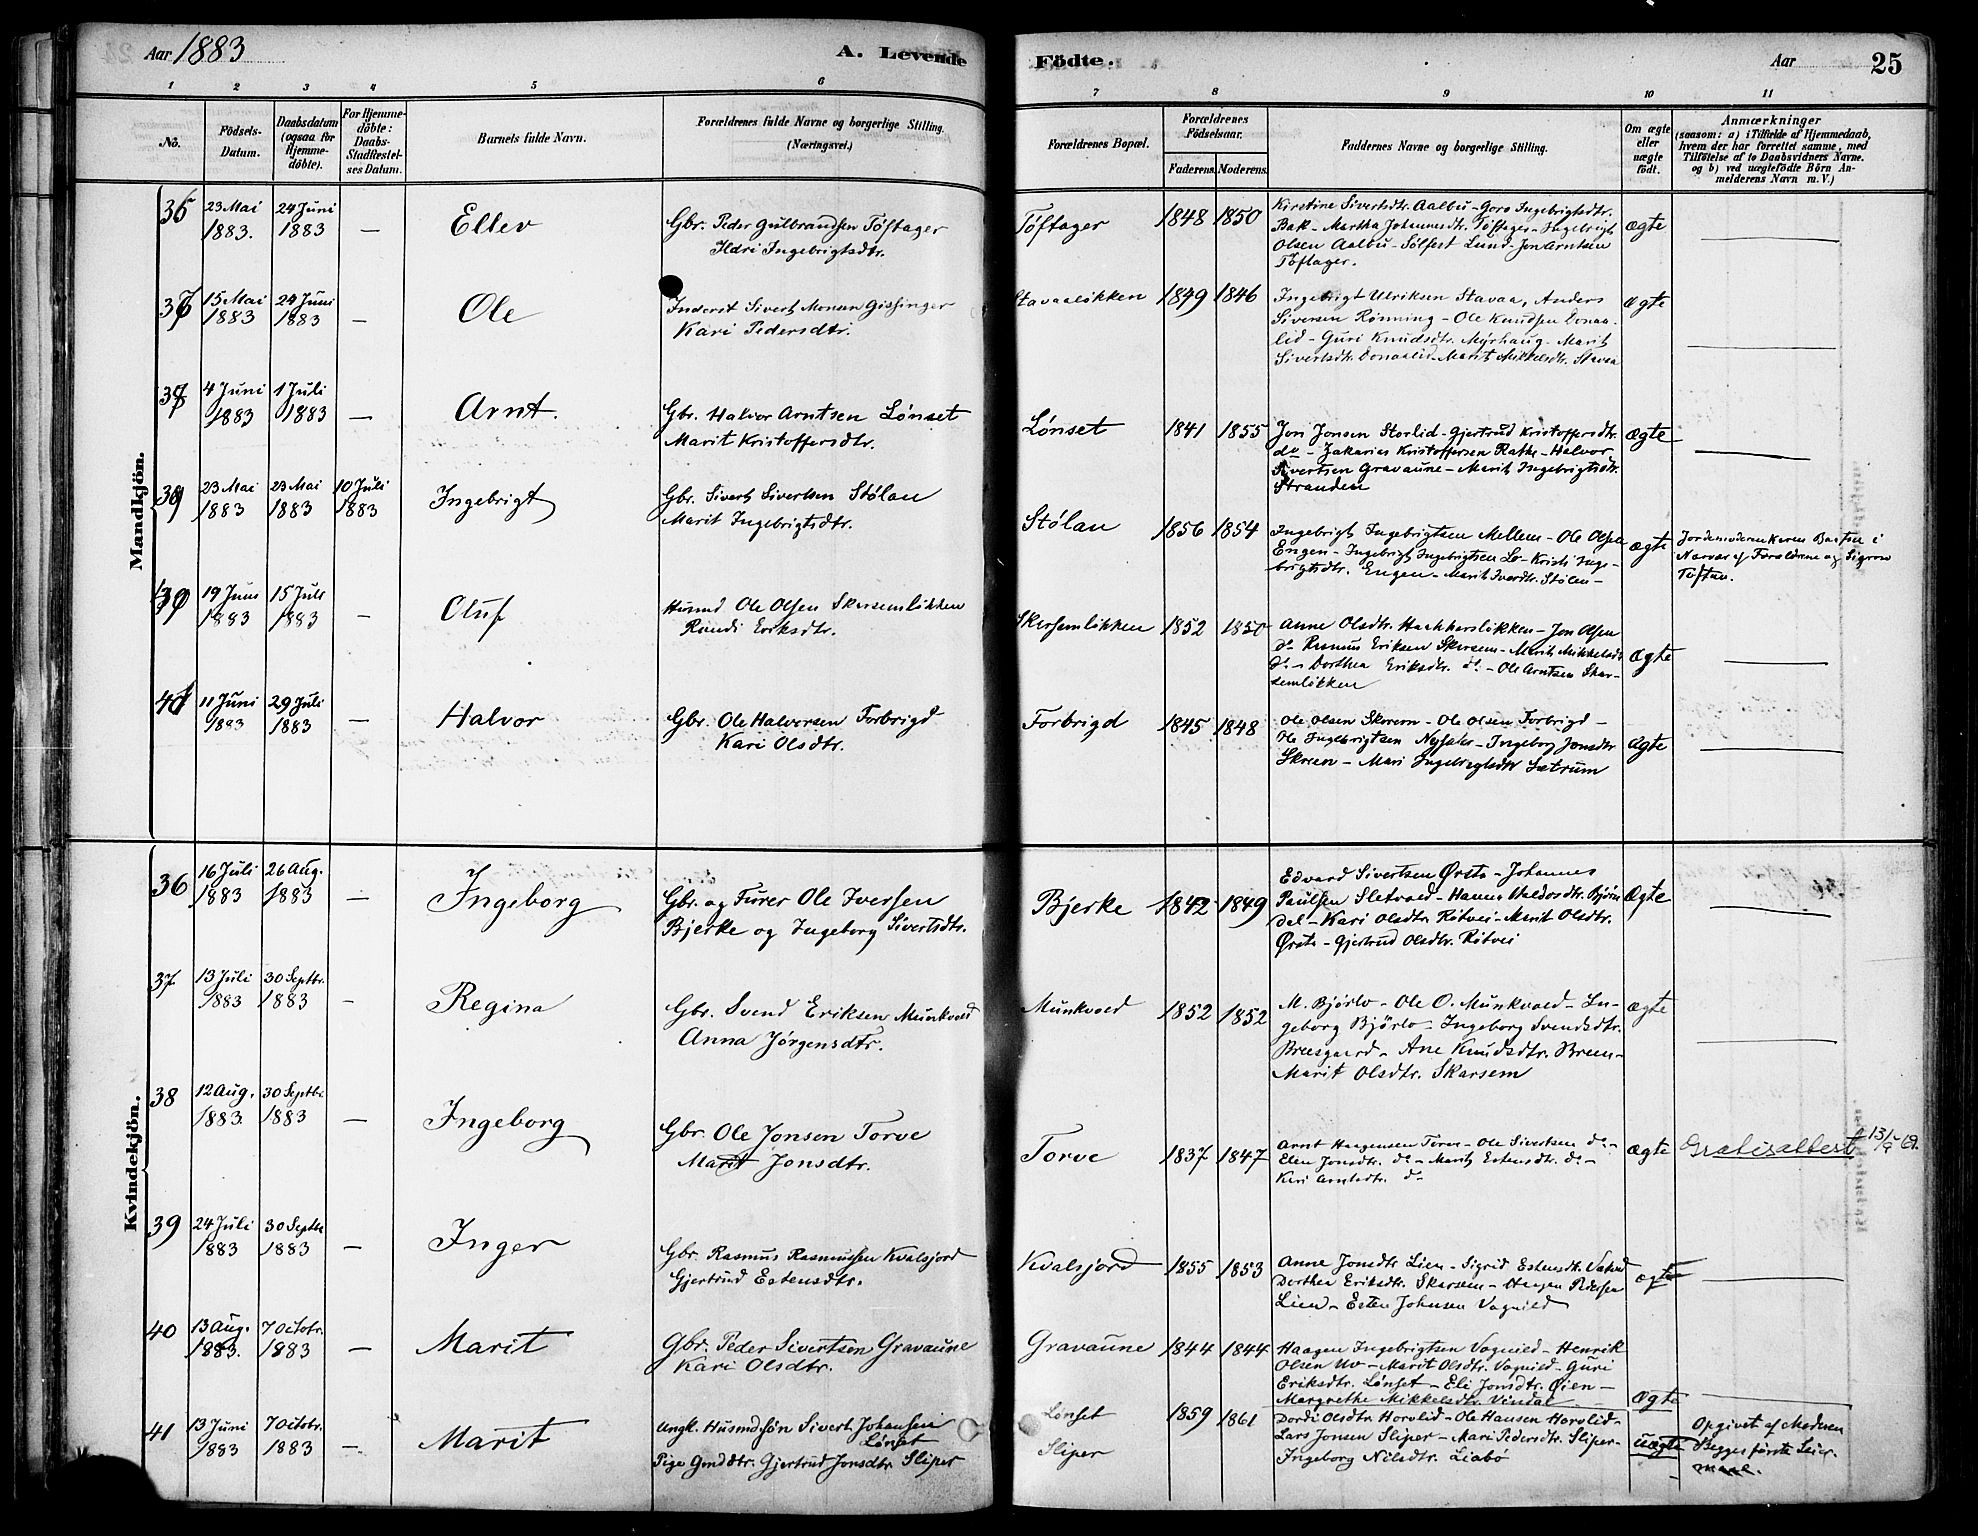 Aar 1883
A. Levende
Födte.
Aar
25
1 2 3 4 5 6 7 8 9 10 11
No.
Födsels-
Datum.
Daabsdatum
(ogsaa for
Hjemme-
döbte).
For Hjemme-
döbte:
Daabs-
Stadfæstel-
ses Datum.
Barnets fulde Navn.
Forældrenes fulde Navne og borgerlige Stilling.
(Næringsvei.)
Forældrenes Bopæl.
Forældrenes
Födselsaar.
Faderens. Moderens.
Faddernes Navne og borgerlige Stilling.
Om ægte
eller
uægte
födt.
Anmærkninger
(saasom: a) i Tilfælde af Hjemmedaab,
hvem der har forrettet samme, med
Tilföielse af to Daabsvidners Navne.
og b) ved uægtefödte Börn An-
melderens Navn m. V.)
Mandkjön.
23 Mai 1883. 24 Juni 1883 — Ellev
Gbr. Peder Gulbrandsen Töftager
Ildri Ingebrigtsdtr.
Töftager 1848 1850
Kirstine Sivertsdtr. Aalbu - Goro Ingebrigtsdtr.
Bak - Martha Johannesdtr. Töftager - Ingebrigt
Olsen Aalbu - Sölfest Lund - Jon Arntsen
Töftager.
ægte —
15 Mai 1883 24 Juni 1883 — Ole
Inderst Sivert Monsen Gissinger
Kari Pedersdtr.
Stavaaløkken 1849 1846
Ingebrigt Ulriksen Stavaa, Anders
Siversen Rønning - Ole Knudsen Donaa-
lid - Guri Knudsdtr. Myrhaug - Marit
Sivertsdtr. Donaalid - Marit Mikkelsdtr. Stavaa
ægte —
4 Juni 1883 1 Juli 1883 — Arnt.
Gbr. Halvor Arntsen Lønset
Marit Kristoffersdtr.
Lønset 1841 1855
Jon Jonsen Storlid - Gjertrud Kristoffersdtr.
do - Zakarias Kristoffersen Rathe - Halvor
Sivertsen Gravaune - Marit Ingebrigtsdtr.
Stranden
ægte —
23 Mai 1883 23 Mai 1883 10 Juli 1883 Ingebrigt
Gbr. Sivert Sivertsen Stølan
Marit Ingebrigtsdtr.
Stølan 1856 1854
Ingebrigt Ingebrigtsen Mellem - Ole Olsen
Engen - Ingebrigt Ingebrigtsen Lo - Kristi Inge-
brigtsdtr. Engen - Marit Iverdtr. Stølen -
ægte
Jordemoderen Karen i
Nærvær af Forældrene og
19 Juni 1883 15 Juli 1883 — Oluf
Husmd Ole Olsen Skarsemløkken
Randi Eriksdtr.
Skarsemløkken 1852 1850
Anne Olsdtr. - Jon Olsen
do - Rasmus Eriksen Skarsem - Marit Mikkelsdtr
do - Dorthea Eriksdtr. do - Ole Arntsen Skar-
semløkken
ægte —
11 Juni 1883 29 Juli 1883 — Halvor
Gbr. Ole Halvorsen Forbrigd
Kari Olsdtr.
Forbrigd 1845 1848
Ole Olsen - Ole Olsen Forbrigd -
Ole Ingebrigtsen - Ingeborg Jonsdtr
Mari Ingebrigtsdtr Sætrum
Ægte —
Kvindekjön.
36 16 Juli 1883 26 Aug. 1883 — Ingeborg
Gbr. og Furer Ole Iversen
Bjerke og Ingeborg Sivertsdtr.
Bjerke 1842 1849
Edvard Sivertsen Ørsta - Johannes
Paulsen Sletvold - Hanna Haldosdtr. Bjørn
dal - Kari Olsdtr. Rötvei - Marit Olsdtr.
Ørsta - Gjertrud Olsdtr. Rötvei
Ægte —
37 13 Juli 1883 30 Septbr. 1883 — Regina
Gbr. Svend Eriksen Munkvold
Anna Jørgensdtr.
Munkvold 1852 1852
M. Bjørlo - Ole O. Munkvold - In-
geborg Bjørlo - Ingeborg Svendsdtr.
Breesgaard - Ane Knudsdtr. Breen -
Marit Olsdtr. Skarsem
ægte —
38 12 Aug. 1883. 30 Septbr. 1883 — Ingeborg
Gbr. Ole Jonsen Torve
Marit Jonsdtr.
Torve 1837 1847
Arnt Haagensen Torve - Ole Sivertsen do -
Elen Jonsdtr. do - Marit Estensdtr. do -
Kari Arntsdtr. do
ægte Gratisattest
39 24 Juli 1883 30 Septbr 1883 — Inger
Gbr. Rasmus Rasmussen Kvalsjord
Gjertrud Estensdtr.
Kvalsjord 1855 1853
Anne Jonsdtr Lien - Sigrid Estensdtr.
Dorthea Eriksdtr. Skarsem - Haagen Pedersen
Lien - Esten Johnsen Vognild
ægte —
40 13 Aug. 1883. 7 Octbr. 1883 — Marit
Gbr. Peder Sivertsen Gravaune
Kari Olsdtr.
Gravaune 1844 1844
Haagen Ingebrigtsen Vognild - Henrik
Olsen Uv - Marit Olsdtr. Vognild - Guri
Eriksdtr. Lønset - Eli Jonsdtr. Øien -
Margrethe Mikkelsdtr. Vindal
Ægte —
41 13 Juni 1883 7 Octbr. 1883 — Marit
Ungk. Husmdsøn Sivert Johansen
Lønset
Pige Gmddtr. Gjertrud Jonsdtr. Sliper
Lønset
Sliper
1859 1861
Dordi Olsdtr. Horvlid - Ole Hansen Horvlid -
Lars Jonsen Sliper - Mari Pedersdtr. Sliper -
Ingeborg Nilsdtr. Liabø
uægte
Opgivet af Moderen
Begges første Leier-
maal.